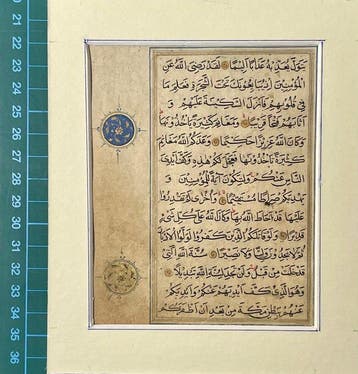 يَتَوَلَّ يُعَذِّبْهُ عَذَابًا أَلِيمًا لَقَدْ رَضِيَ اللَّهُ عَنِ
الْمُؤْمِنِينَ إِذْ يُبَايِعُونَكَ تَحْتَ الشَّجَرَةِ فَعَلِمَ مَا
فِي قُلُوبِهِمْ فَأَنْزَلَ السَّكِينَةَ عَلَيْهِمْ وَ
أَثَابَهُمْ فَتْحًا قَرِيبًا وَمَغَانِمَ كَثِيرَةً يَأْخُذُونَهَا
وَكَانَ اللَّهُ عَزِيزًا حَكِيمًا وَعَدَكُمُ اللَّهُ مَغَانِمَ
كَثِيرَةً تَأْخُذُونَهَا فَعَجَّلَ لَكُمْ هَذِهِ وَكَفَّ أَيْدِيَ
النَّاسِ عَنْكُمْ وَلِتَكُونَ آيَةً لِلْمُؤْمِنِينَ وَ
يَهْدِيَكُمْ صِرَاطًا مُسْتَقِيمًا وَأُخْرَى لَمْ تَقْدِرُوا
عَلَيْهَا قَدْ أَحَاطَ اللَّهُ بِهَا وَكَانَ اللَّهُ عَلَى كُلِّ شَيْءٍ
قَدِيرًا وَلَوْ قَاتَلَكُمُ الَّذِينَ كَفَرُوا لَوَلَّوُا الْأَدْبَارَ
ثُمَّ لَا يَجِدُونَ وَلِيًّا وَلَا نَصِيرًا سُنَّةَ اللَّهِ الَّتِي
قَدْ خَلَتْ مِنْ قَبْلُ وَلَنْ تَجِدَ لِسُنَّةِ اللَّهِ تَبْدِيلًا
وَهُوَ الَّذِي كَفَّ أَيْدِيَهُمْ عَنْكُمْ وَأَيْدِيَكُمْ
عَنْهُمْ بِبَطْنِ مَكَّةَ مِنْ بَعْدِ أَنْ أَظْفَرَكُمْ
21
22
23
24
25
26
27
28
29
30
31
32
33
34
35
36